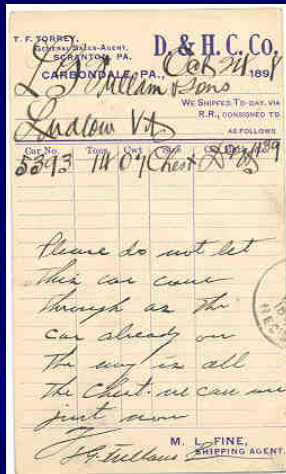 T. F. TORREY,
GENERAL SALES-AGENT,
SCRANTON, PA.
D. & H. C. Co.
CARBONDALE, PA., Oct 24 1898
L G Fullam & Sons
WE SHIPPED TO-DAY, VIA
R.R., CONSIGNED TO
Ludlow Vt
AS FOLLOWS
Car No. Tons Cwt Size
5393 14 07 Chest D & H
Please do not let
this car come
through as the
car already on
the way is all
the Chest we can use
just now
M. L. FINE,
SHIPPING AGENT.